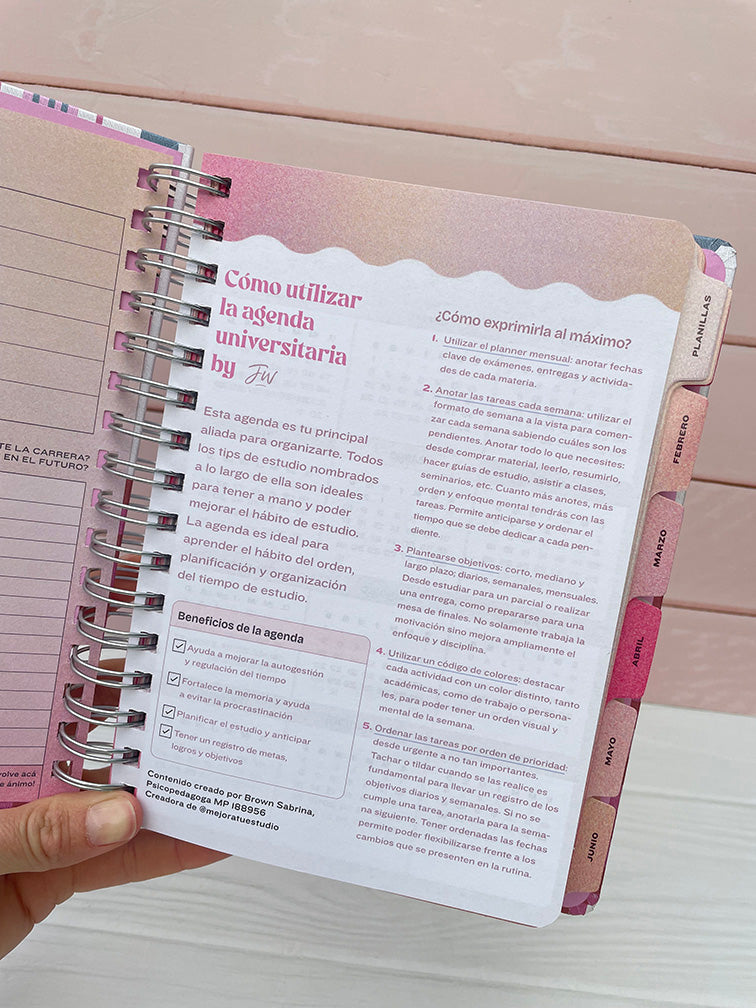 TE LA CARRERA?
EN EL FUTURO?
olve acá
e ánimo!
Cómo utilizar
la agenda
universitaria
by JW
Esta agenda es tu principal
aliada para organizarte. Todos
los tips de estudio nombrados
a lo largo de ella son ideales
para tener a mano y poder
mejorar el hábito de estudio.
La agenda es ideal para
aprender el hábito del orden,
planificación y organización
del tiempo de estudio.
Beneficios de la agenda
Ayuda a mejorar la autogestión
y regulación del tiempo
Fortalece la memoria y ayuda
a evitar la procrastinación
Planificar el estudio y anticipar
Tener un registro de metas,
logros y objetivos
Contenido creado por Brown Sabrina,
Psicopedagoga MP I88956
Creadora de @mejoratuestudio
¿Cómo exprimirla al máximo?
1. Utilizar el planner mensual: anotar fechas
clave de exámenes, entregas y activida-
des de cada materia.
2. Anotar las tareas cada semana: utilizar el
formato de semana a la vista para comen-
zar cada semana sabiendo cuáles son los
pendientes. Anotar todo lo que necesites:
desde comprar material, leerlo, resumirlo,
hacer guías de estudio, asistir a clases,
seminarios, etc. Cuanto más anotes, más
orden y enfoque mental tendrás con las
tareas. Permite anticiparse y ordenar el
tiempo que se debe dedicar a cada pen-
diente.
3. Plantearse objetivos: corto, mediano y
largo plazo; diarios, semanales, mensuales.
Desde estudiar para un parcial o realizar
una entrega, como prepararse para una
mesa de finales. No solamente trabaja la
motivación sino mejora ampliamente el
enfoque y disciplina.
4. Utilizar un código de colores: destacar
cada actividad con un color distinto, tanto
académicas, como de trabajo o persona-
les, para poder tener un orden visual y
mental de la semana.
5. Ordenar las tareas por orden de prioridad:
desde urgente a no tan importantes.
Tachar o tildar cuando se las realice es
fundamental para llevar un registro de los
objetivos diarios y semanales. Si no se
cumple una tarea, anotarla para la sema-
na siguiente. Tener ordenadas las fechas
permite poder flexibilizarse frente a los
cambios que se presenten en la rutina.
PLANILLAS
FEBRERO
MARZO
ABRIL
MAYO
JUNIO